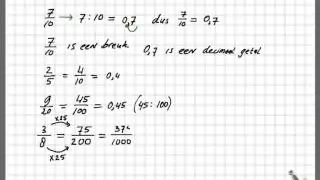 7/10 → 7 : 10 = 0,7 dus 7/10 = 0,7
7/10 is een breuk. 0,7 is een decimaal getal
2/5 = 4/10 = 0,4
9/20 = 45/100 = 0,45 (45 : 100)
x25
3/8 = 75/200 = 374/1000
x25